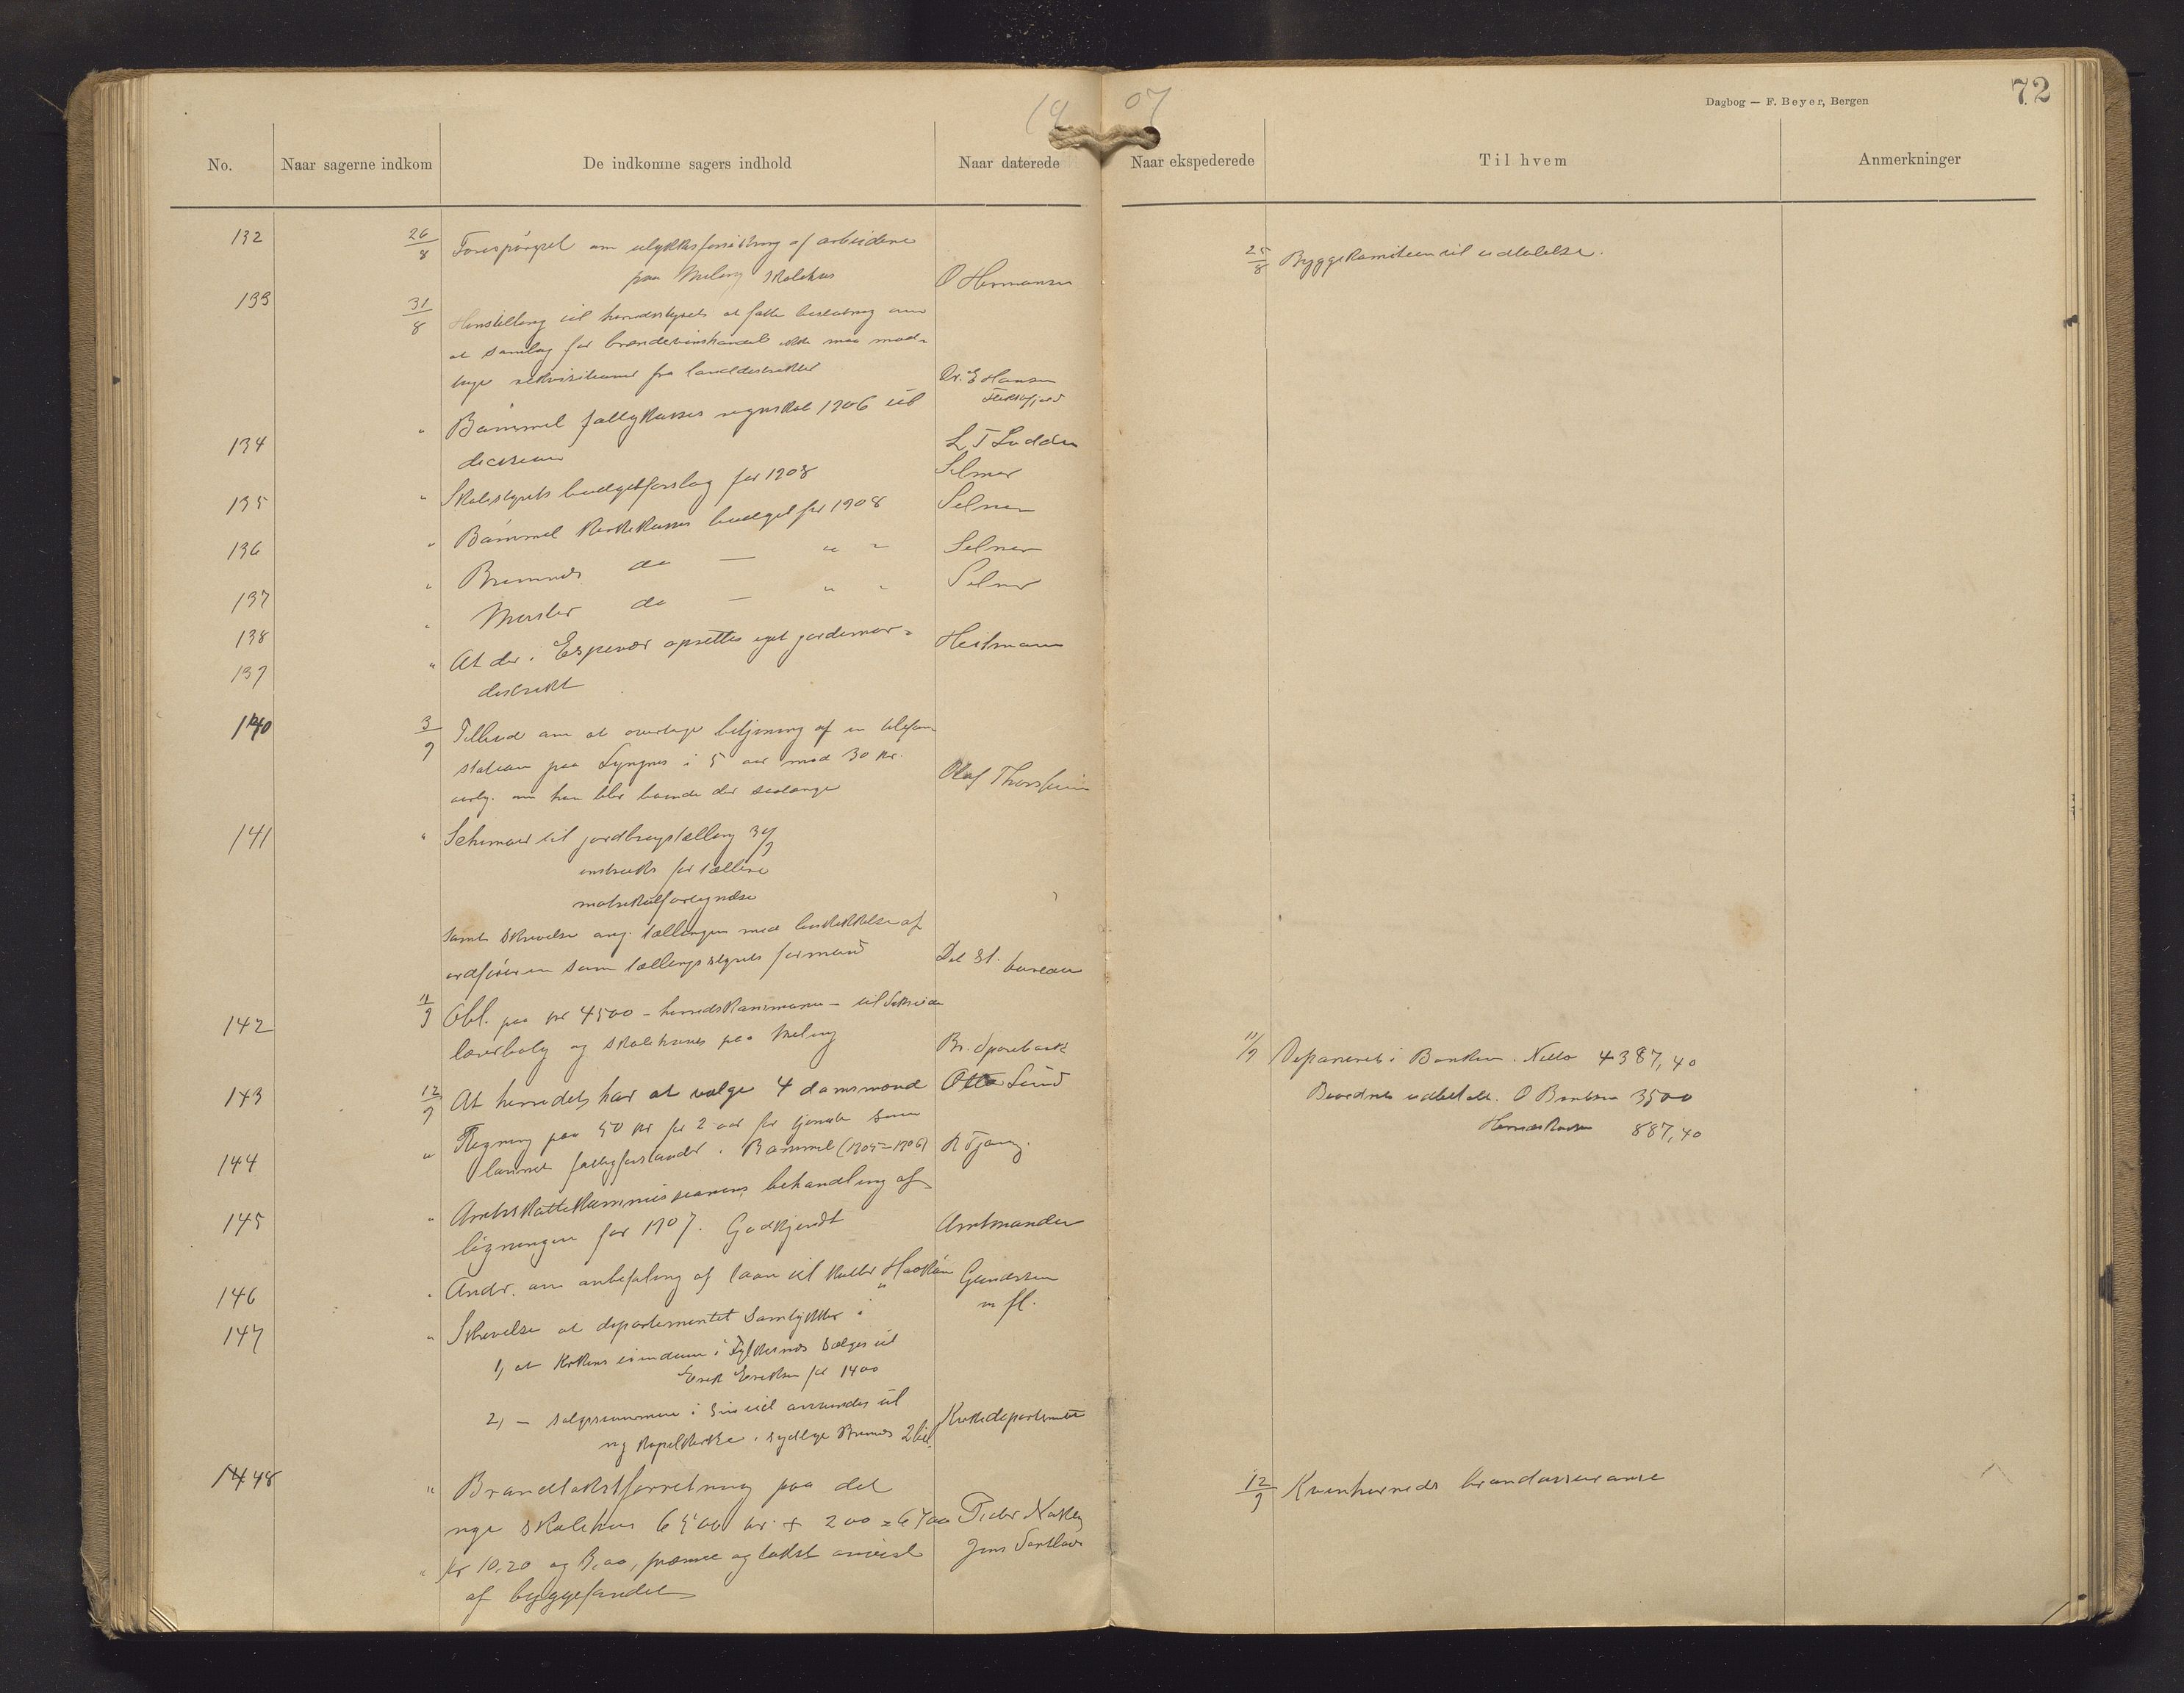 1907
72
Dagbog — F. Beyer, Bergen
No.
Naar sagerne indkom
De indkomne sagers indhold
Naar daterede
Naar ekspederede
Til hvem
Anmerkninger
132 26/8 Forespørgsel om ulykkesforsikring af arbeiderne
paa Meling skolehus O Hermansen
25/8 Byggekomiteen til udtalelse.
133 31/8 Henstilling til herredsstyret at fatte beslutning om
at samlag for brændevinshandel ikke maa mod-
tage rekvisitioner fra landdistrikter Dr. E Hansen
134 " Bømmel fattigkasses regnskab 1906 til
decision L T Lodden
135 " Skolestyrets budgetforslag for 1908 Selmer
136 " Bømmel Kirkekasses budget for 1908 Selmer
137 " Bremnes do — " " Selmer
138 " Moster do — " " Selmer
139 " At der i Espevær oprettes eget jordemor-
distrikt Heitmann
140 3/9 Tilbud om at overtage betjening af en telefon-
station paa Lyngnes i 5 aar mod 30 kr.
aarlig. om han blir boende der saalænge Olaf
141 " Schemaer til jordbrugstælling 30/9
instruks for tællere
matrikulfortegnelse
samt skrivelse ang. tællingen med beskikkelse af
ordføreren som tællingsstyrets formand Det st. bureau
142 11/9 Obl. paa kr 4500 – herredskassunans – til
lærerbolig og skolehuset paa Meling Br. Sparebank
11/9 Deponeret i Banken. Netto 4387,40
Beordret udbetalt. O Bentsen 3500
Herredskassen 887,40
143 12/9 At herredet har at vælge 4 domsmænd Otto Lund
144 " Regning paa 50 kr for 2 aar for tjeneste som
lønnet fattigforstander i Bømmel (1905–1906)
145 " Amtsskattekommissionens behandling af
ligningen for 1907. Godkjendt Amtmanden
146 " Andr. om anbefaling af laan til kutter Haakon Gundersen
m fl.
147 " Skrivelse at departementet samtykker i
1, at Kirkens eiendom i sælges til
Erik Eriksen for 1400
2, — salgssummen i sin tid anvendes til
ny kapelkirke i sydlige Bremnes 2 bil. Kirkedepartementet
148 " Brandtakstforretning paa det
nye skolehus 6500 kr + 200 = 6700 Peder
" kr 10,20 og 3,00, præmie og takst anvist Jens
af byggefondet
12/9 Kvinherreds brandassurance